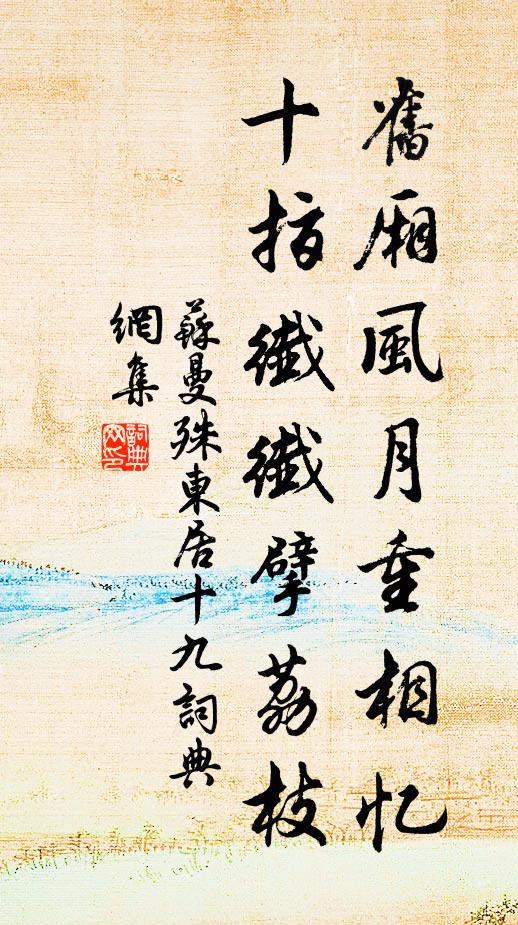 舊廂風月重相忆
十指纖纖擘荔枝
蘇曼殊東居十九詞典
網集
詞典